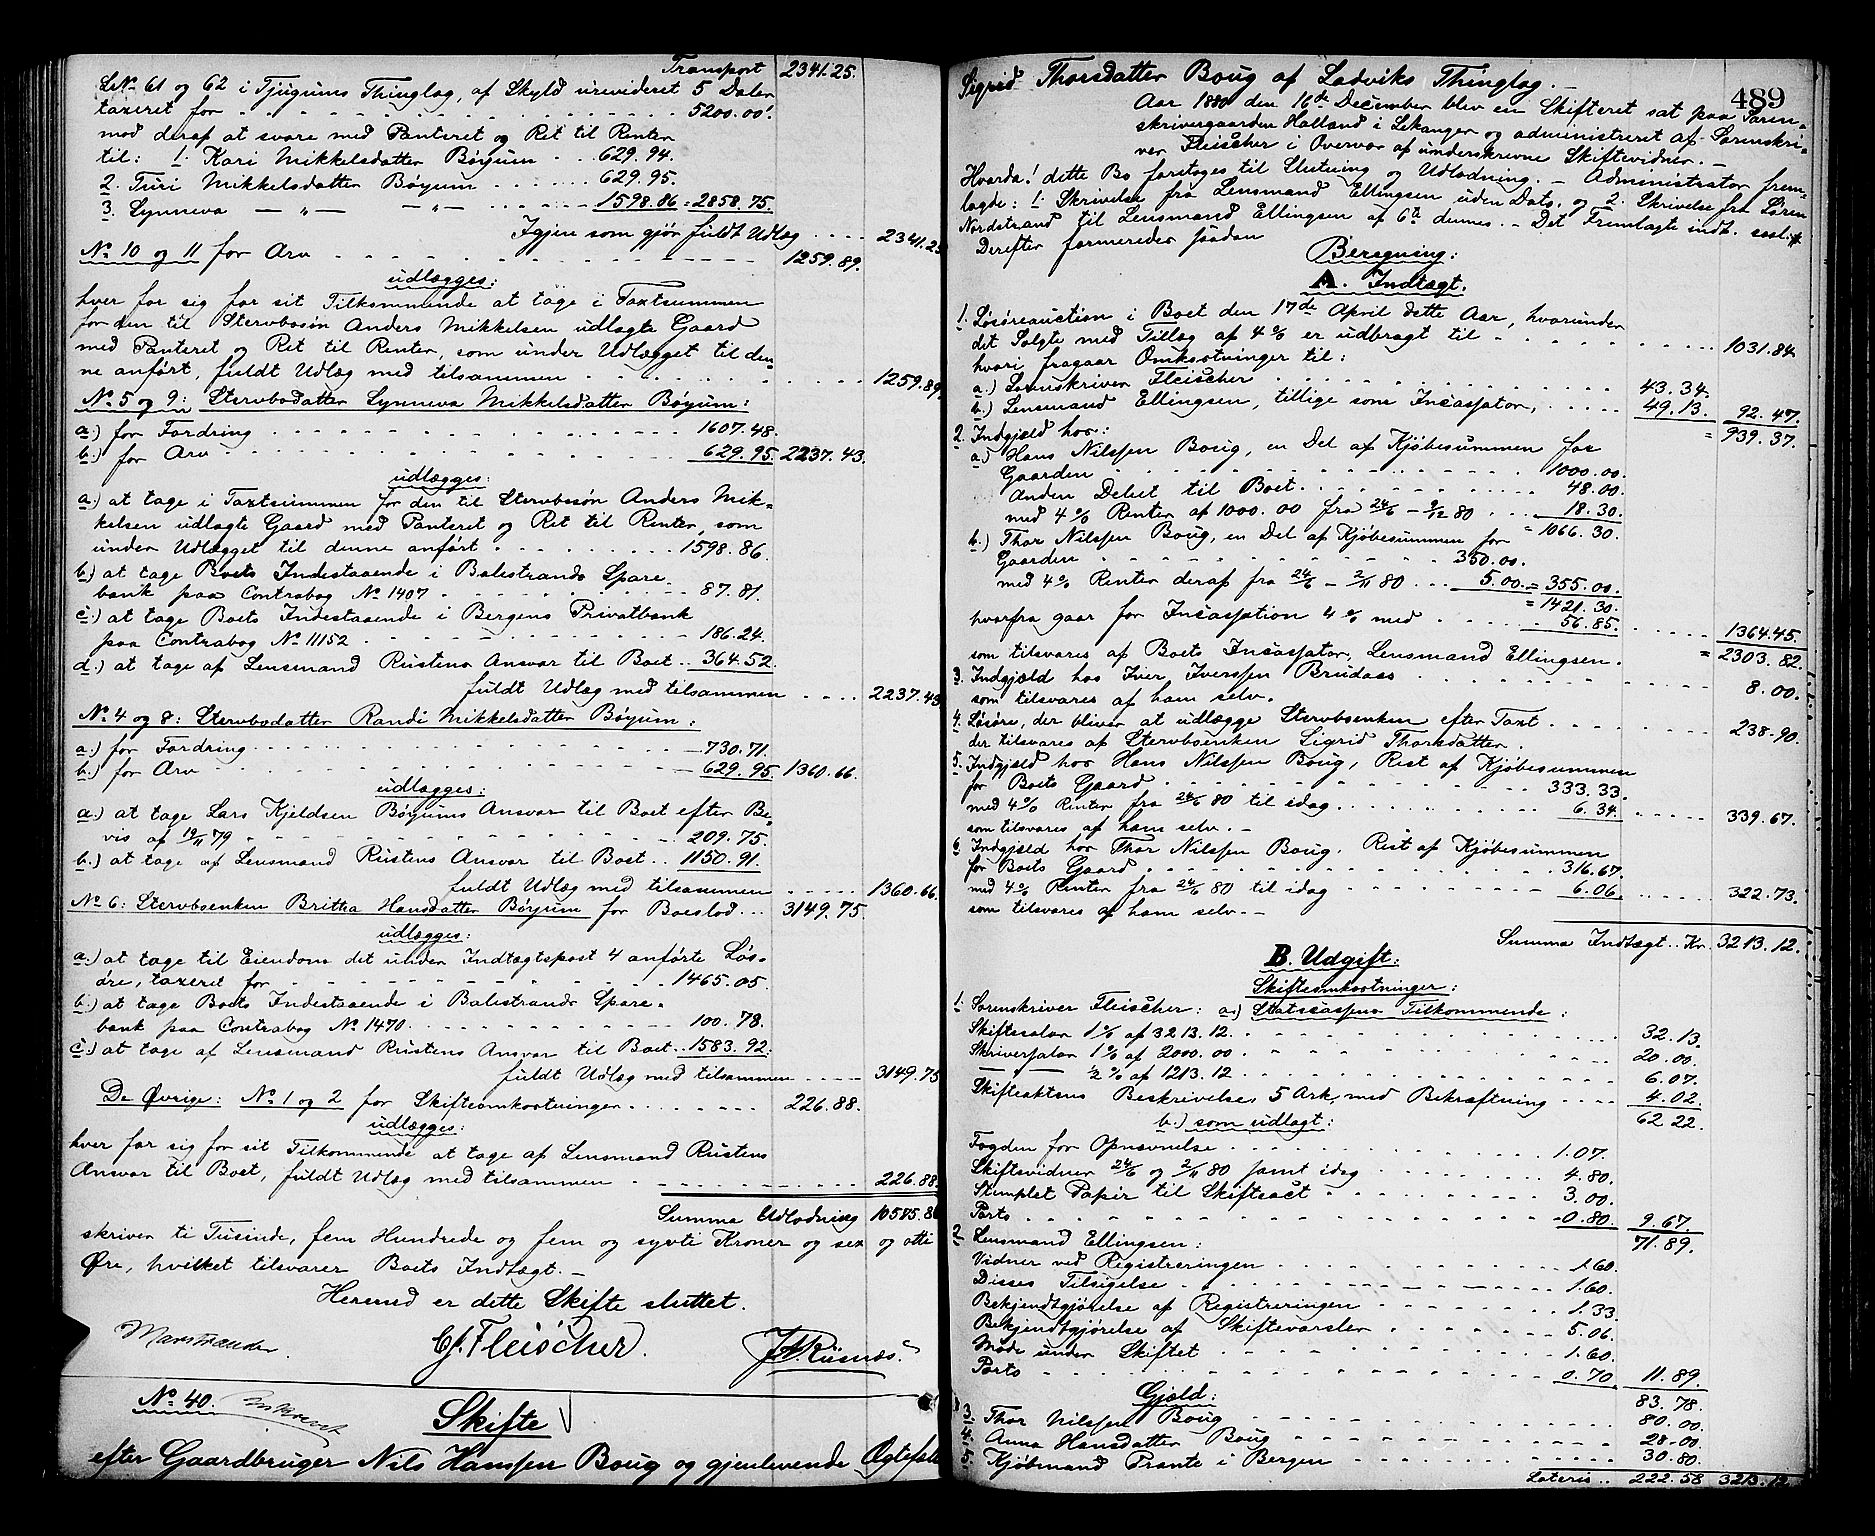 Transport 2341.25.
LNo 61 og 62 i Tjugums Thinglag, af Skyld urevideret 5 Daler
taxeret for 5200.00!
mod deraf at svare med Panteret og Ret til Renter
til: 1. Kari Mikkelsdatter Bøyum 629.94.
2. Turi Mikkelsdatter Bøyum 629.95.
3. Synneva — „ — — „ — 1598.86 = 2858.75.
Igjen som gjør fuldt Udlæg 2341.25
No 10 og 11 for Arv 1259.89.
udlægges:
hver for sig for sit Tilkommende at tage i Taxtsummen
for den til Stervbosøn Anders Mikkelsen udlagte Gaard
med Panteret og Ret til Renter, som under Udlægget til den-
ne anført, fuldt Udlæg med tilsammen 1259.89
No 5 og 9: Stervbodatter Synneva Mikkelsdatter Bøyum:
a.) for Fordring 1607.48.
b.) for Arv 629.95. 2237.43.
udlægges:
a.) at tage i Taxtsummen for den til Stervbosøn Anders Mik-
kelsen udlagte Gaard med Panteret og Ret til Renter, som
under Udlægget til denne anført 1598.86.
b.) at tage Boets Indestaaende i Balestrands Spare-
bank paa Contrabog No 1407 87.81.
c.) at tage Boets Indestaaende i Bergens Privatbank
paa Contrabog No 11152 186.24.
d.) at tage af Lensmand Rustens Ansvar til Boet 364.52.
fuldt Udlæg med tilsammen 2237.43
No 4 og 8: Stervbodatter Randi Mikkelsdatter Bøyum:
a.) for Fordring 730.71.
b.) for Arv 629.95 1360.66.
udlægges:
a.) at tage Lars Kjeldsen Bøyums Ansvar til Boet efter Be-
vis af 19/11 79 209.75.
b.) at tage af Lensmand Rustens Ansvar til Boet 1150.91.
fuldt Udlæg med tilsammen 1360.66
No 6: Stervboenken Brittha Hansdatter Bøyum for Boeslod 3149.75.
udlægges:
a.) at tage til Eiendom det under Indtægtspost 4 anførte Løs-
øre, taxeret for 1465.05.
b.) at tage Boets Indestaaende i Balestrands Spare-
bank paa Contrabog No 1470. 100.78.
c.) at tage af Lensmand Rustens Ansvar til Boet 1583.92.
fuldt Udlæg med tilsammen 3149.75
De Øvrige: No 1 og 2 for Skifteomkostninger 226.88.
udlægges:
hver for sig for sit Tilkommende at tage af Lensmand Rustens
Ansvar til Boet, fuldt Udlæg med tilsammen 226.88.
Summa Udlodning 10575.86
skriver ti Tusinde, fem Hundrede og fem og syvti Kroner og sex og otti
Øre, hvilket tilsvarer Boets Indtægt. —
Hermed er dette Skifte sluttet.
CJ. Fleischer.
No 40.
Skifte
efter Gaardbruger Nils Hanssen Boug og gjenlevende Ægtefæll
489
Sigrid Thorsdatter Boug af Ladviks Thinglag. —
Aar 1880 den 16de December blev en Skifteret sat paa Soren-
skrivergaarden Husland i Lekanger og administreret af Sorenskri-
ver Fleischer i Overvær af underskrevne Skiftevidner. —
Hvorda! dette Bo foretoges til Slutning og Udlodning. — Administrator frem-
lagde: 1. Skrivelse fra Lensmand Ellingsen uden Dato, og 2. Skrivelse fra Søren
Nordstrand til Lensmand Ellingsen af 6te dennes. — Det Fremlagte indt.
Derefter formeredes saadan
Beregning:
A. Indtægt.
1. Løsøreauction i Boet den 17de April dette Aar, hvorunder
det Solgte med Tillæg af 4 % er udbragt til 1031.84.
hvori fragaar Omkostninger til:
a.) Sorenskriver Fleischer 43.34.
b.) Lensmand Ellingsen, tillige som Incassator, 49.13. 92.47.
= 939.37.
2. Indgjæld hos:
a.) Hans Nilssen Boug, en Del af Kjøbesummen for
Gaarden 1000.00.
Anden Debet til Boet 48.00.
med 4 % Renter af 1000.00 fra 24/6 – 9/12 80 18.30.
= 1066.30.
b.) Thor Nilssen Boug, en Del af Kjøbesummen for
Gaarden 350.00.
med 4 % Renter deraf fra 24/6 – 2/11 80 5.00 = 355.00.
= 1421.30.
hvorfra gaar for Incassation 4 % med 56.85. 1364.45.
som tilsvares af Boets Incassator, Lensmand Ellingsen. = 2303.82.
3. Indgjæld hos Iver Iverssen Brudaas 8.00.
som tilsvares af ham selv.
4. Løsøre, der bliver at udlægge Stervboenken efter Taxt 238.90.
der tilsvares af Stervboenken Sigrid Thorsdatter.
5. Indgjæld hos Hans Nilssen Boug, Rest af Kjøbesummen
for Boets Gaard 333.33.
med 4 % Renter fra 24/6 80 til idag 6.34. 339.67.
som tilsvares af ham selv. —
6. Indgjæld hos Thor Nilssen Boug, Rest af Kjøbesummen
for Boets Gaard 316.67.
med 4 % Renter fra 24/6 80 til idag 6.06. 322.73.
som tilsvares af ham selv. —
Summa Indtægt Kr. 3213.12.
B. Udgift:
Skifteomkostninger:
1. Sorenskriver Fleischer: a.) Statscassens Tilkommende:
Skiftesalær 1 % af 3213.12 32.13.
Skriversalær 1 % af 2000.00 20.00.
—„— 1/2 % af 1213.12 6.07.
Skifteaktens Beskrivelse 5 Ark, med Bekræftning 4.02.
62.22.
b.) som udlagt:
Fogden for Opnævnelse 1.07.
Skiftevidner 24/6 og 2/11 80 samt idag 4.80.
Stemplet Papir til Skifteact 3.00.
Porto 0.80. 9.67.
71.89.
2. Lensmand Ellingsen:
Vidner ved Registreringen 1.60.
Disses Tilsigelse 1.60.
Bekjendtgjørelse af Registreringen 1.33
Bekjendtgjørelse af Skiftevarsler 5.06.
Møde under Skiftet 1.60.
Porto 0.70 11.89.
83.78.
Gjæld:
3. Thor Nilssen Boug 80.00.
4. Anna Hansdatter Boug 28.00.
5. Kjøbmand Trante i Bergen 30.80.
Lateris 222.58 3213.12.